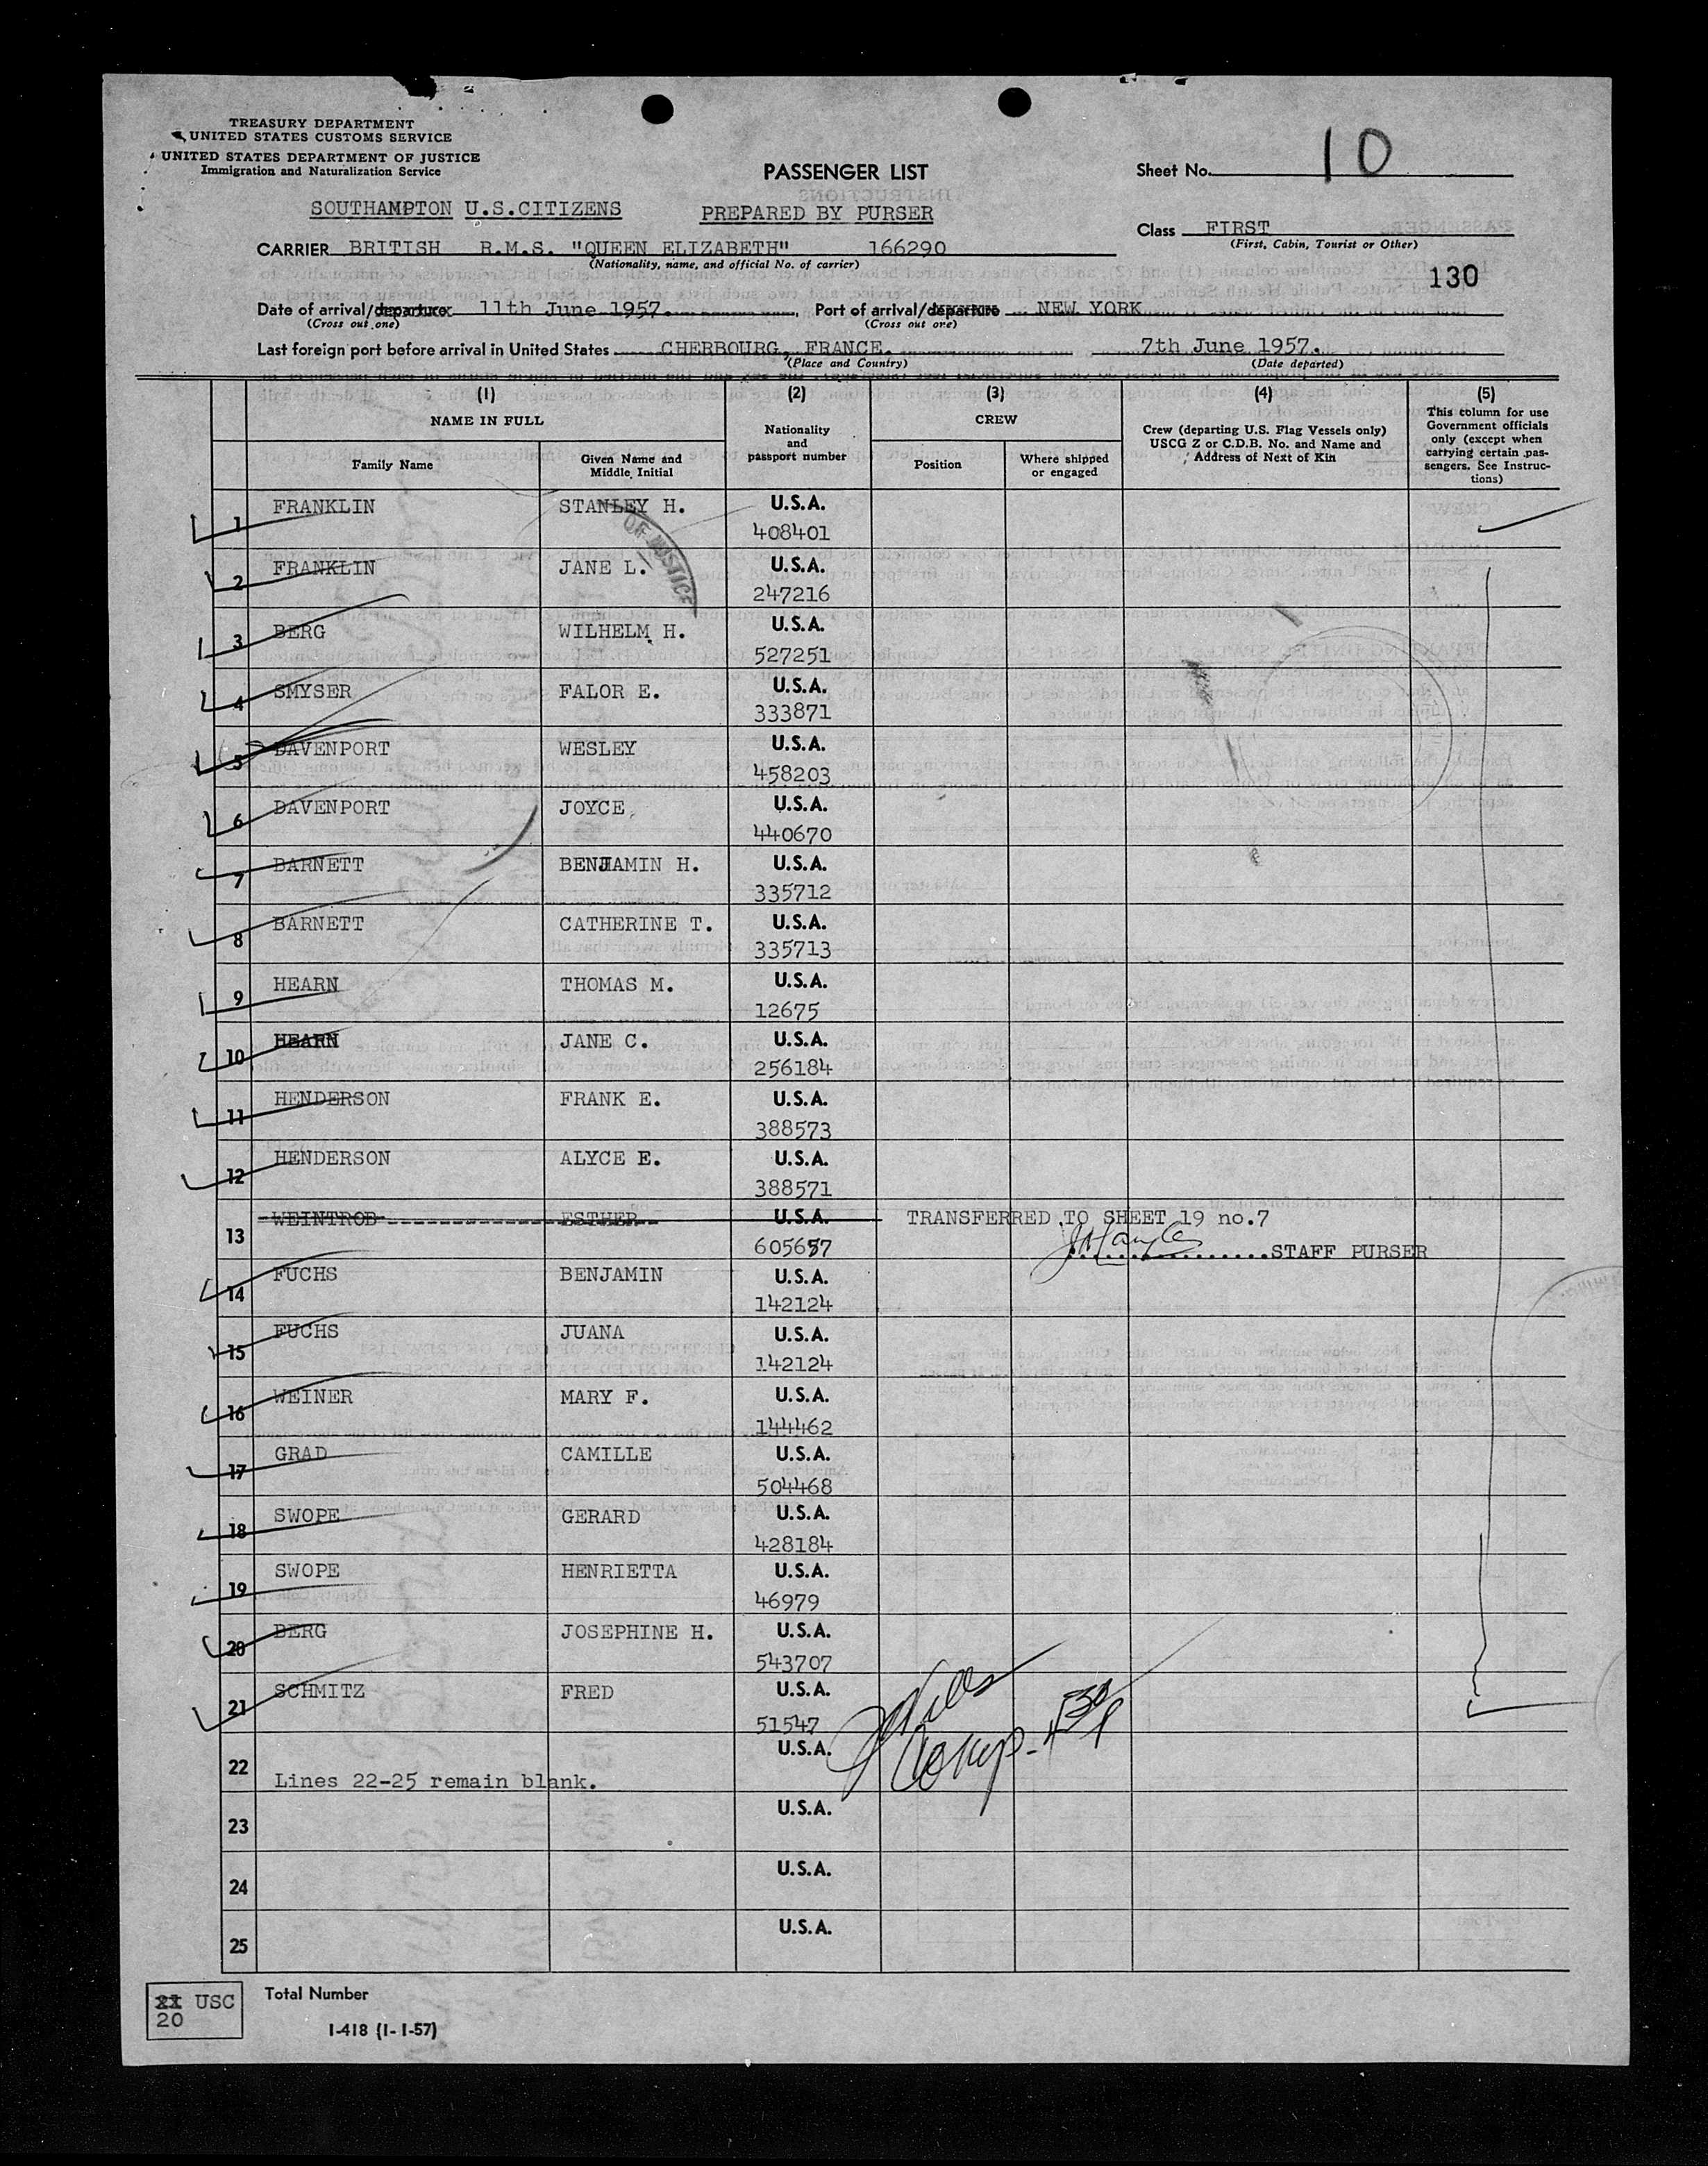 TREASURY DEPARTMENT
UNITED STATES CUSTOMS SERVICE
UNITED STATES DEPARTMENT OF JUSTICE
Immigration and Naturalization Service
PASSENGER LIST
Sheet No. 10
SOUTHAMPTON U.S.CITIZENS
PREPARED BY PURSER
Class FIRST
(First, Cabin, Tourist or Other)
CARRIER BRITISH R.M.S. "QUEEN ELIZABETH" 166290
(Nationality, name, and official No. of carrier)
130
Date of arrival/departure 11th June 1957. Port of arrival/departure NEW YORK
(Cross out one) (Cross out one)
Last foreign port before arrival in United States CHERBOURG, FRANCE. 7th June 1957.
(Place and Country) (Date departed)
(1) (2) (3) (4) (5)
NAME IN FULL
Family Name
Given Name and Middle Initial
Nationality and passport number
CREW
Position
Where shipped or engaged
Crew (departing U.S. Flag Vessels only) USCG Z or C.D.B. No. and Name and Address of Next of Kin
This column for use Government officials only (except when carrying certain passengers. See Instructions)
1 FRANKLIN STANLEY H. U.S.A.
408401
OF JUSTICE
2 FRANKLIN JANE L. U.S.A.
247216
3 BERG WILHELM H. U.S.A.
527251
4 SMYSER FALOR E. U.S.A.
333871
5 DAVENPORT WESLEY U.S.A.
458203
6 DAVENPORT JOYCE U.S.A.
440670
7 BARNETT BENJAMIN H. U.S.A.
335712
8 BARNETT CATHERINE T. U.S.A.
335713
9 HEARN THOMAS M. U.S.A.
12675
10 HEARN JANE C. U.S.A.
256184
11 HENDERSON FRANK E. U.S.A.
388573
12 HENDERSON ALYCE E. U.S.A.
388571
13 WEINTROB ESTHER U.S.A. TRANSFERRED TO SHEET 19 no.7
605657 STAFF PURSER
14 FUCHS BENJAMIN U.S.A.
142124
15 FUCHS JUANA U.S.A.
142124
16 WEINER MARY F. U.S.A.
144462
17 GRAD CAMILLE U.S.A.
504468
18 SWOPE GERARD U.S.A.
428184
19 SWOPE HENRIETTA U.S.A.
46979
20 BERG JOSEPHINE H. U.S.A.
543707
21 SCHMITZ FRED U.S.A.
51547
22 U.S.A.
Lines 22-25 remain blank.
23 U.S.A.
24 U.S.A.
25 U.S.A.
21 USC
20
Total Number
I-418 (1-1-57)